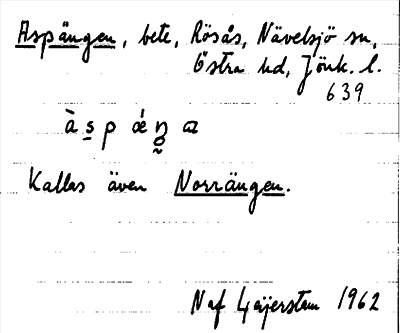 Aspängen, bete, Rösås, Nävelsjö sn,
Östra hd, Jönk. l.
639
Kallas även Norrängen.
Naf Gejerstam 1962